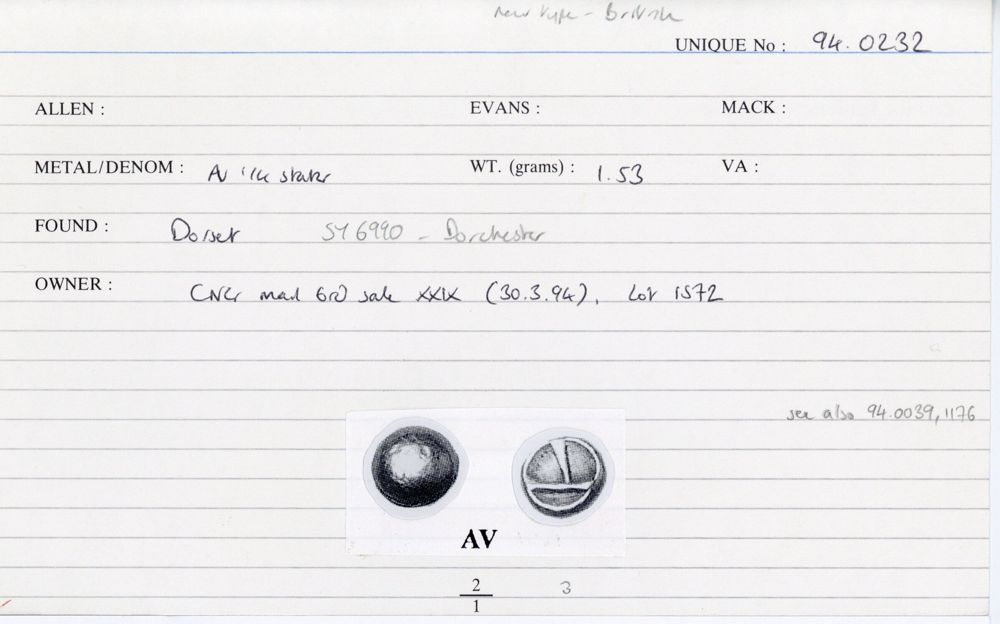 new type - British
UNIQUE No : 94.0232
ALLEN : EVANS : MACK :
METAL/DENOM : AV 1/4 stater WT. (grams) : 1.53 VA :
FOUND : Dorset SY 6990 - Dorchester
OWNER : CNG mail bid sale XXIX (30.3.94), Lot 1572
see also 94.0039, 1176
AV
2 3
1